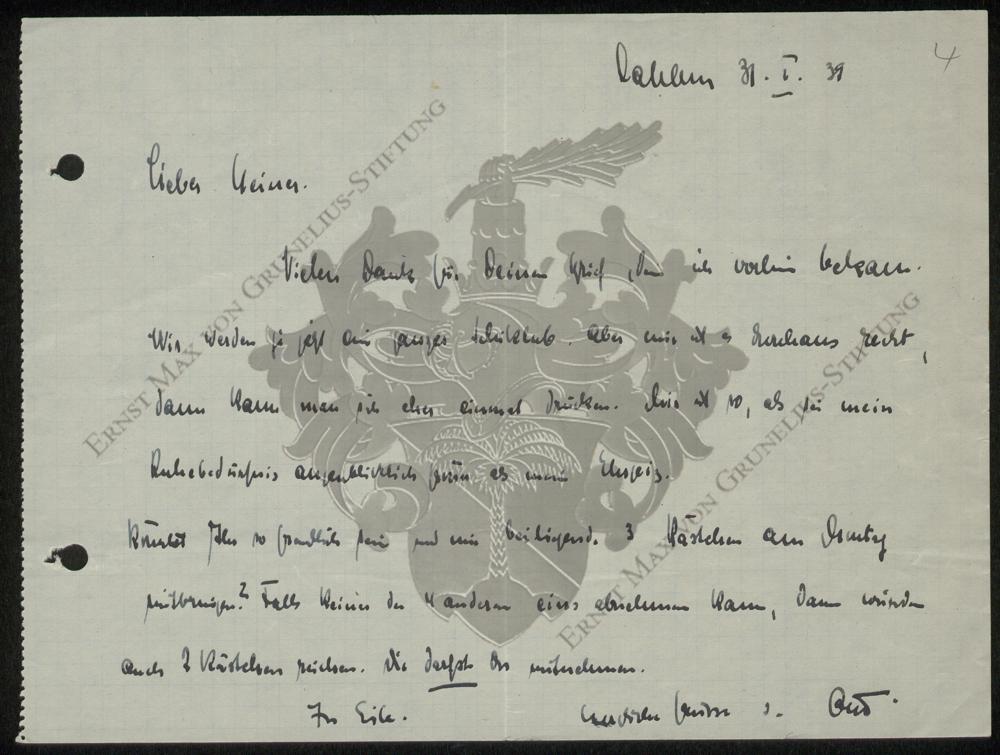 4
Dahlem 31. I. 39
Lieber Heiner.
Vielen Dank für Deinen Brief, den ich vorhin bekam.
Wir werden ja jetzt ein ganzer . Aber mir ist es durchaus recht,
dann kann man sich eher einmal drücken. Mir ist so, als sei mein
Ruhebedürfnis augenblicklich grösser als mein Ehrgeiz.
Könntet Ihr so freundlich sein und mir beiliegend. 3 Kästchen am
mitbringen? Falls keiner der 4 anderen eins abnehmen kann, dann würden
auch 2 Kästchen reichen. Die darfst Du mitnehmen.
In Eile. Herzliche Grüsse Otto.
ERNST MAX VON GRUNELIUS-STIFTUNG
ERNST MAX VON GRUNELIUS-STIFTUNG